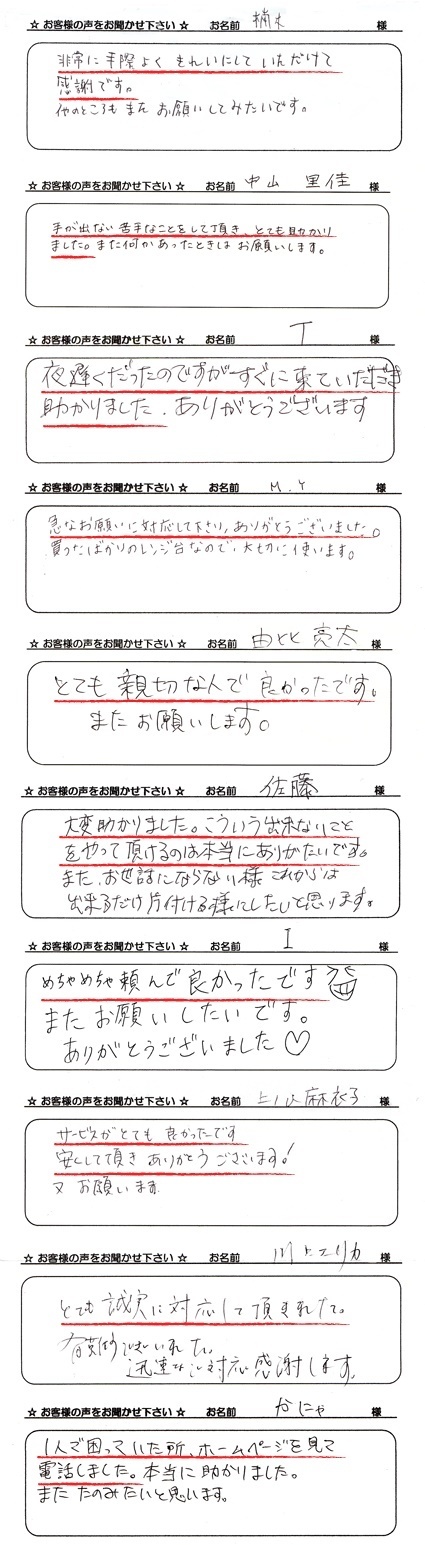 ☆ お客様の声をお聞かせ下さい ☆ お名前 楠木 様
非常に手際よく きれいにして いただけて
感謝です。
他のところも また お願いしてみたいです。
☆ お客様の声をお聞かせ下さい ☆ お名前 中山 里佳 様
手が出ない苦手なことをして頂き、とても助かり
ました。また何かあったときは お願いします。
☆ お客様の声をお聞かせ下さい ☆ お名前 T 様
夜遅くだったのですがすぐに来ていただき
助かりました. ありがとうございます
☆ お客様の声をお聞かせ下さい ☆ お名前 M.Y 様
急なお願いに対応して下さり、ありがとうございました。
買ったばかりのレンジ台なので、大切に使います。
☆ お客様の声をお聞かせ下さい ☆ お名前 亮太 様
とても 親切な人で 良かったです。
また お願いします。
☆ お客様の声をお聞かせ下さい ☆ お名前 佐藤 様
大変助かりました。こういう出来ないこと
をやって頂けるのは本当にありがたいです。
また、お世話にならない様 これからは
出来るだけ片付ける様にしたいと思います。
☆ お客様の声をお聞かせ下さい ☆ お名前 I 様
めちゃめちゃ頼んで良かったです
また お願いしたいです。
ありがとうございました♡
☆ お客様の声をお聞かせ下さい ☆ お名前 麻衣子 様
サービスがとても 良かったです
安くして頂き ありがとうございます!
又 お願います
☆ お客様の声をお聞かせ下さい ☆ お名前 川上エリカ 様
とても 誠実に対応して頂きました。
迅速な 対応 感謝します。
☆ お客様の声をお聞かせ下さい ☆ お名前 かにゃ 様
1人で困っていた所、ホームページを見て
電話しました。本当に助かりました。
また たのみたいと思います。